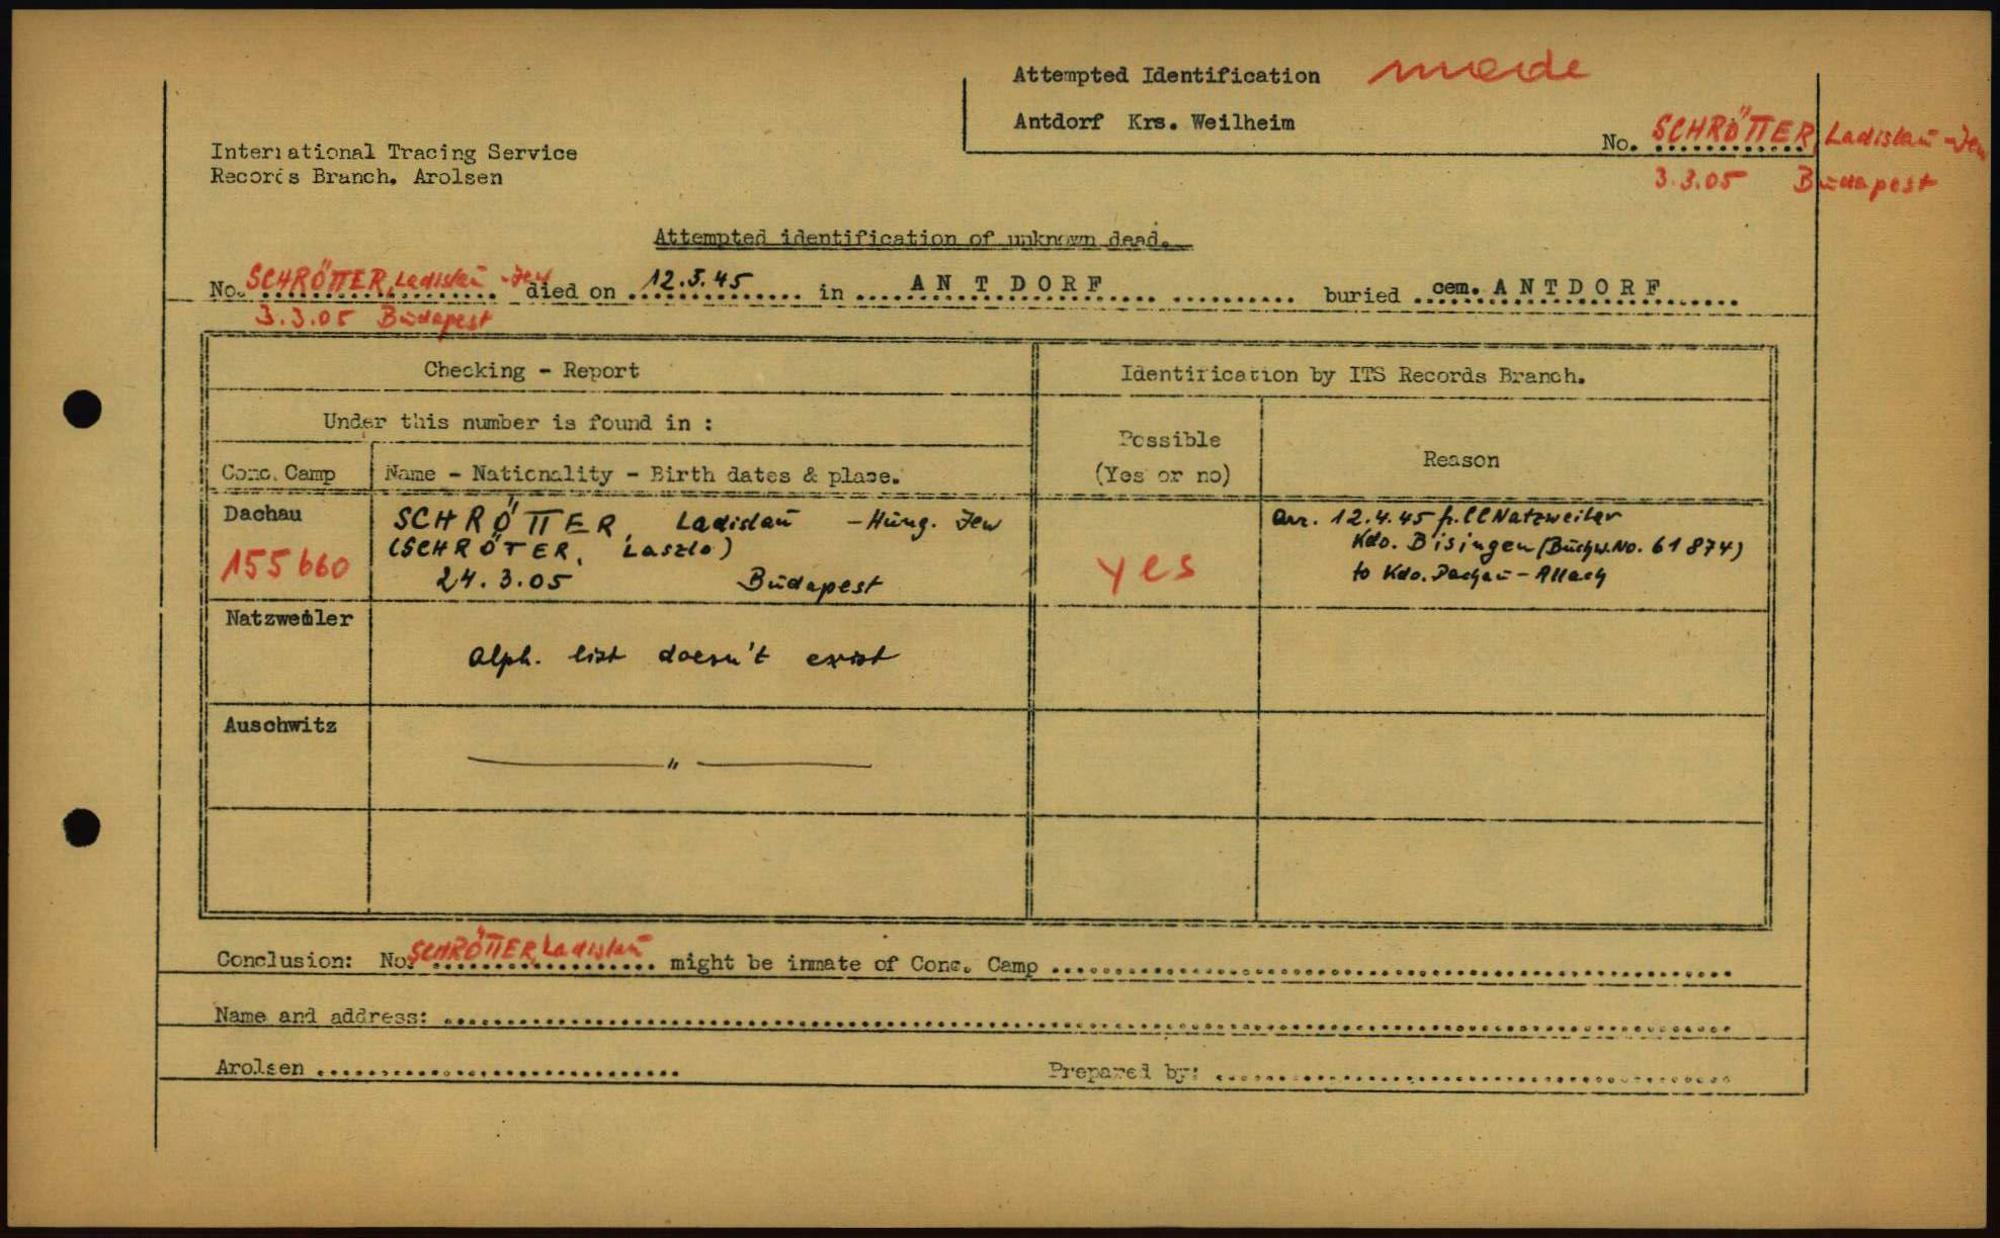 Attempted Identification made
Antdorf Krs. Weilheim
No. SCHRÖTTER, Ladislaŭ - Jew
3.3.05 Bŭdapest
International Tracing Service
Records Branch. Arolsen
Attempted identification of unknown dead.
No. SCHRÖTTER, Ladislaŭ - Jew died on 12.5.45 in A N T D O R F buried cem. A N T D O R F
3.3.05 Bŭdapest
Checking - Report
Identification by ITS Records Branch.
Under this number is found in :
Possible
(Yes or no)
Reason
Conc. Camp
Name - Nationality - Birth dates & place.
Dachau
155660
SCHRÖTTER, Ladislaŭ - Hŭng. Jew
(SCHRÖTER, Laszlo)
24.3.05 Bŭdapest
yes
Arr. 12.4.45 fr. CC Natzweiler
Kdo. Bisingen (Bŭchw. No. 61874)
to Kdo. Dachaŭ - Allach
Natzweiler
Alph. list doesn't exist
Auschwitz
— " —
Conclusion: No. SCHRÖTTER, Ladislaŭ might be inmate of Conc. Camp
Name and address:
Arolsen
Prepared by: